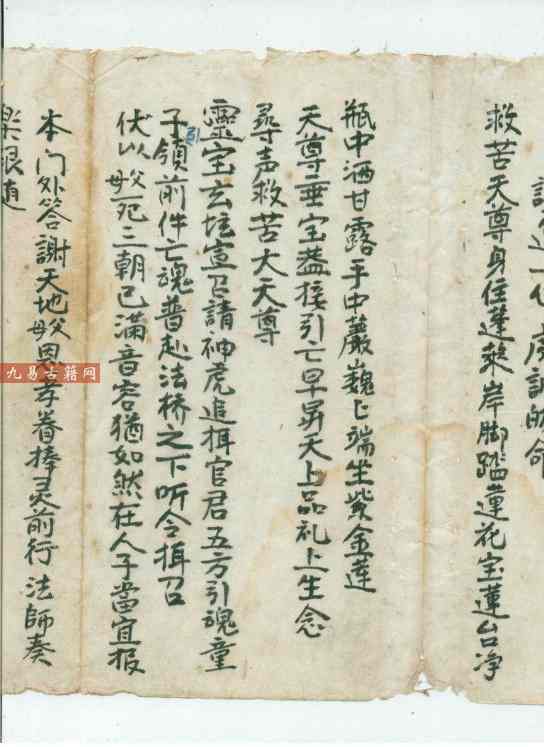 救苦天尊身住蓬莱岸脚踏莲花宝莲台净
瓶中洒甘露手中巖巍巍上端坐紫金莲
天尊垂宝蓋接引亡早昇天上品礼上生念
尋声救苦大天尊
靈宝玄坛宣召請神虎追摂官君五方引魂童
子引領前件亡魂普赴法桥之下听令摂召
伏以父母死三朝已满音容猶如然在人子當宜报
本门外答謝天地父母恩孝眷捧灵前行法師奏
九易古籍网